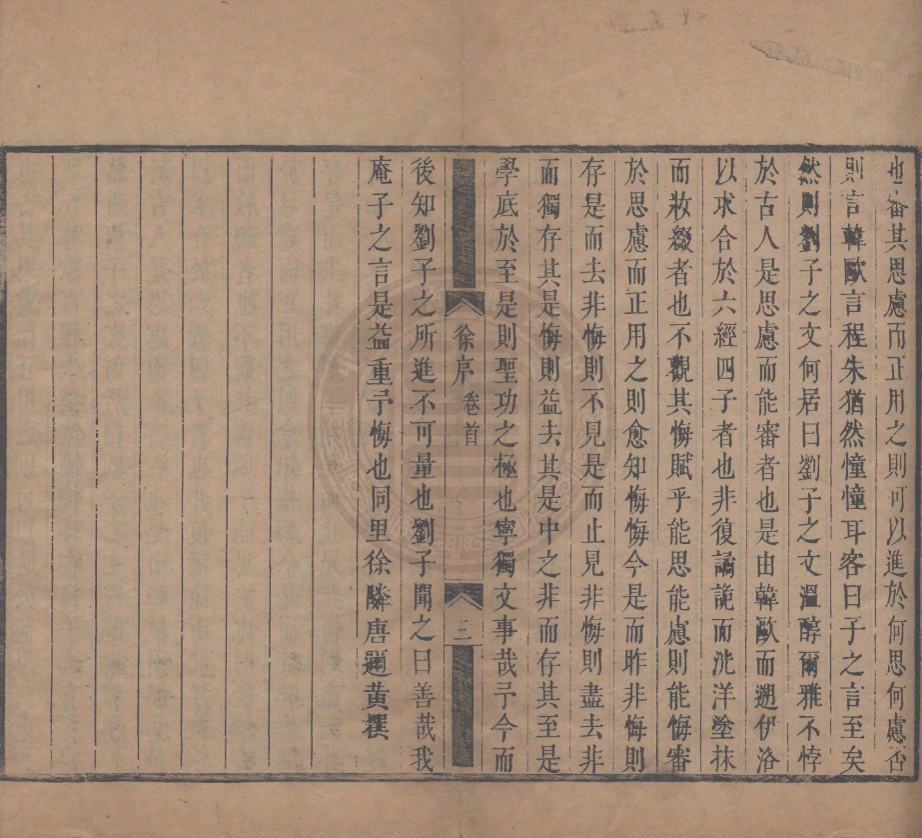 也審其思慮而正用之則可以進於何思何慮否
則言韓歐言程朱猶然憧憧耳客曰子之言至矣
然則劉子之文何居曰劉子之文溫醇爾雅不悖
於古人是思慮而能審者也是由韓歐而遡伊洛
以求合於六經四子者也非復譎詭而洸洋塗抹
而妝綴者也不觀其悔賦乎能思能慮則能悔審
於思慮而正用之則愈知悔悔今是而昨非悔則
存是而去非悔則不見是而止見非悔則盡去非
而獨存其是悔則益去其是中之非而存其至是
學底於至是則聖功之極也寧獨文事哉予今而
徐序 卷首 三
後知劉子之所進不可量也劉子聞之曰善哉我
庵子之言是益重予悔也同里徐隣唐邇黃撰